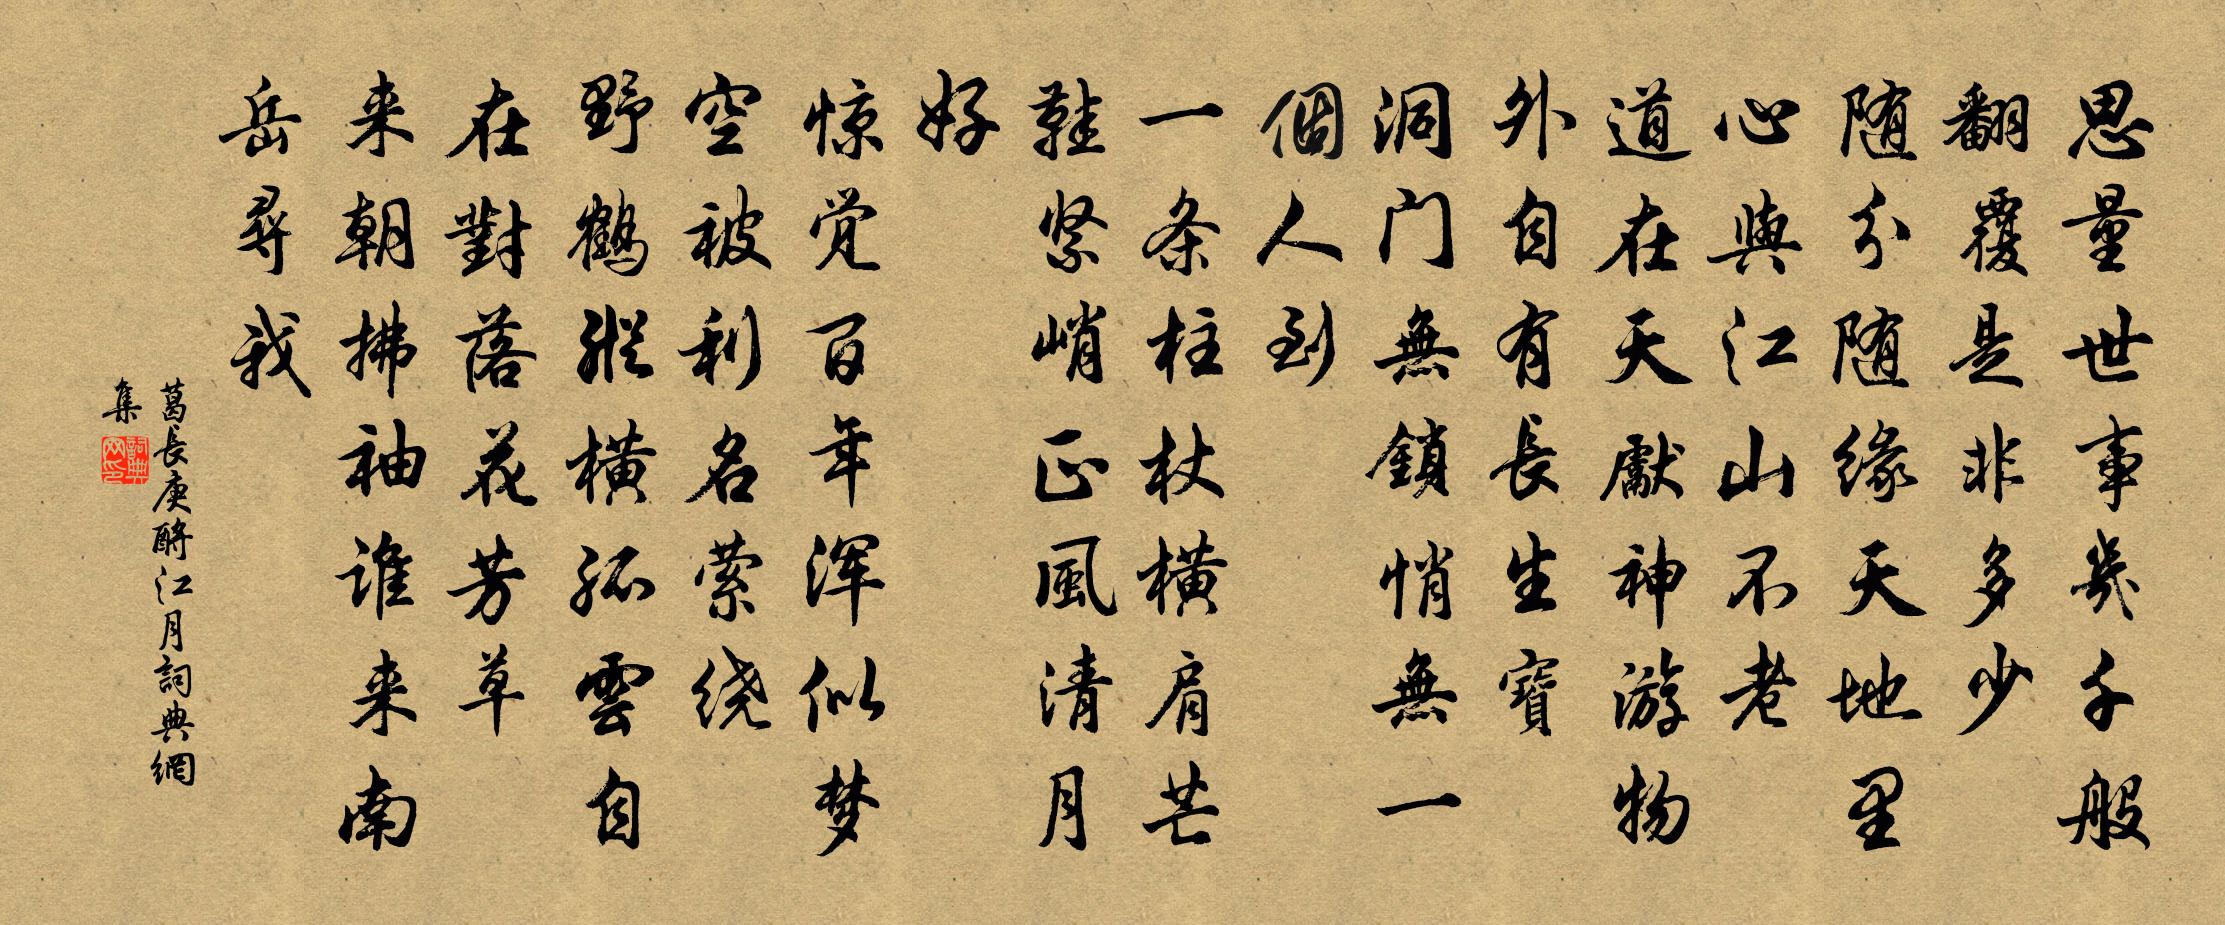 思量世事幾千般
翻覆是非多少
随分随缘天地里
心與江山不老
道在天獻神游物
外自有長生寶
洞门無鎖悄無一
個人到
一条柱杖横肩芒
鞋紧峭正風清月
好
惊觉百年浑似梦
空被利名萦绕
野鹤縱横孤雲自
在對落花芳草
来朝拂袖谁来南
岳尋我
葛長庚酹江月詞典網
集